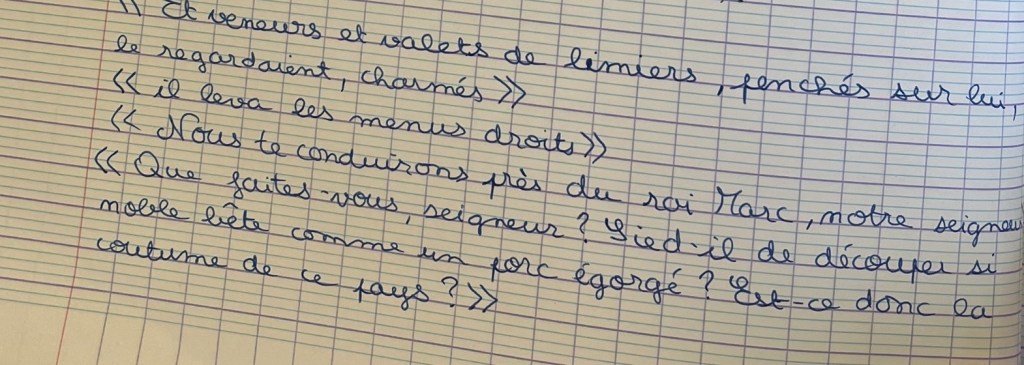 « Et veneurs et valets de limiers, penchés sur lui,
le regardaient, charmés »
« il leva les menus droits »
« Nous te conduirons près du roi Marc, notre seigneu
« Que faites-vous, seigneur ? Sied-il de découper si
noble bête comme un porc égorgé ? Est-ce donc la
coutume de ce pays ? »